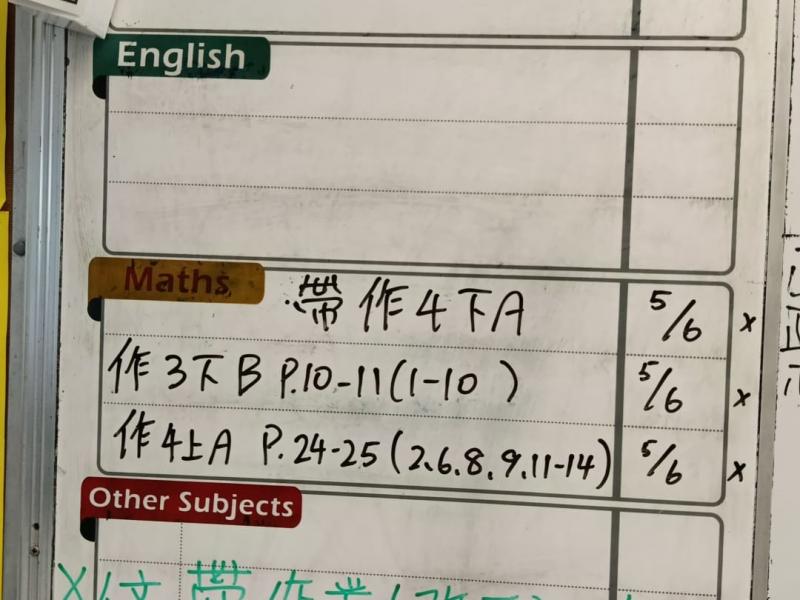 English
Maths
帶 作4下A 5/6 x
作3下B P.10-11(1-10 ) 5/6 x
作4上A P.24-25(2、6、8、9、11-14) 5/6 x
Other Subjects
帶